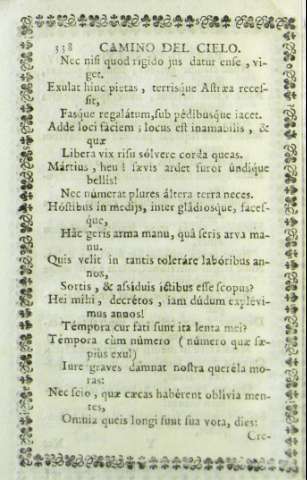 338 CAMINO DEL CIELO.
Nec nisi quod rigido jus datur ense, vi-
get.
Exulat hinc pietas, terrisque Astræa reces-
sit,
Fasque regalátum, sub pédibusque iacet.
Adde loci faciem; locus est inamabilis, &
quæ
Libera vix risu sólvere corda queas.
Mártius, heu! sævis ardet furor úndique
bellis!
Nec númerat plures áltera terra neces.
Hóstibus in medijs, inter gládiosque, faces-
que,
Hâc geris arma manu, quâ seris arva ma-
nu.
Quis velit in tantis toleráre labóribus an-
nos,
Sortis, & assiduis ictibus esse scopus?
Hei mihi, decrétos, iam dúdum explévi-
mus annos!
Témpora cur fati sunt ita lenta mei?
Témpora cùm número (número quæ sæ-
piùs exul)
Iure graves damnat nostra queréla mo-
ras:
Nescio, quæ cæcas habérent oblivia men-
tes,
Omnia queis longi sunt sua vota, dies:
Cre-